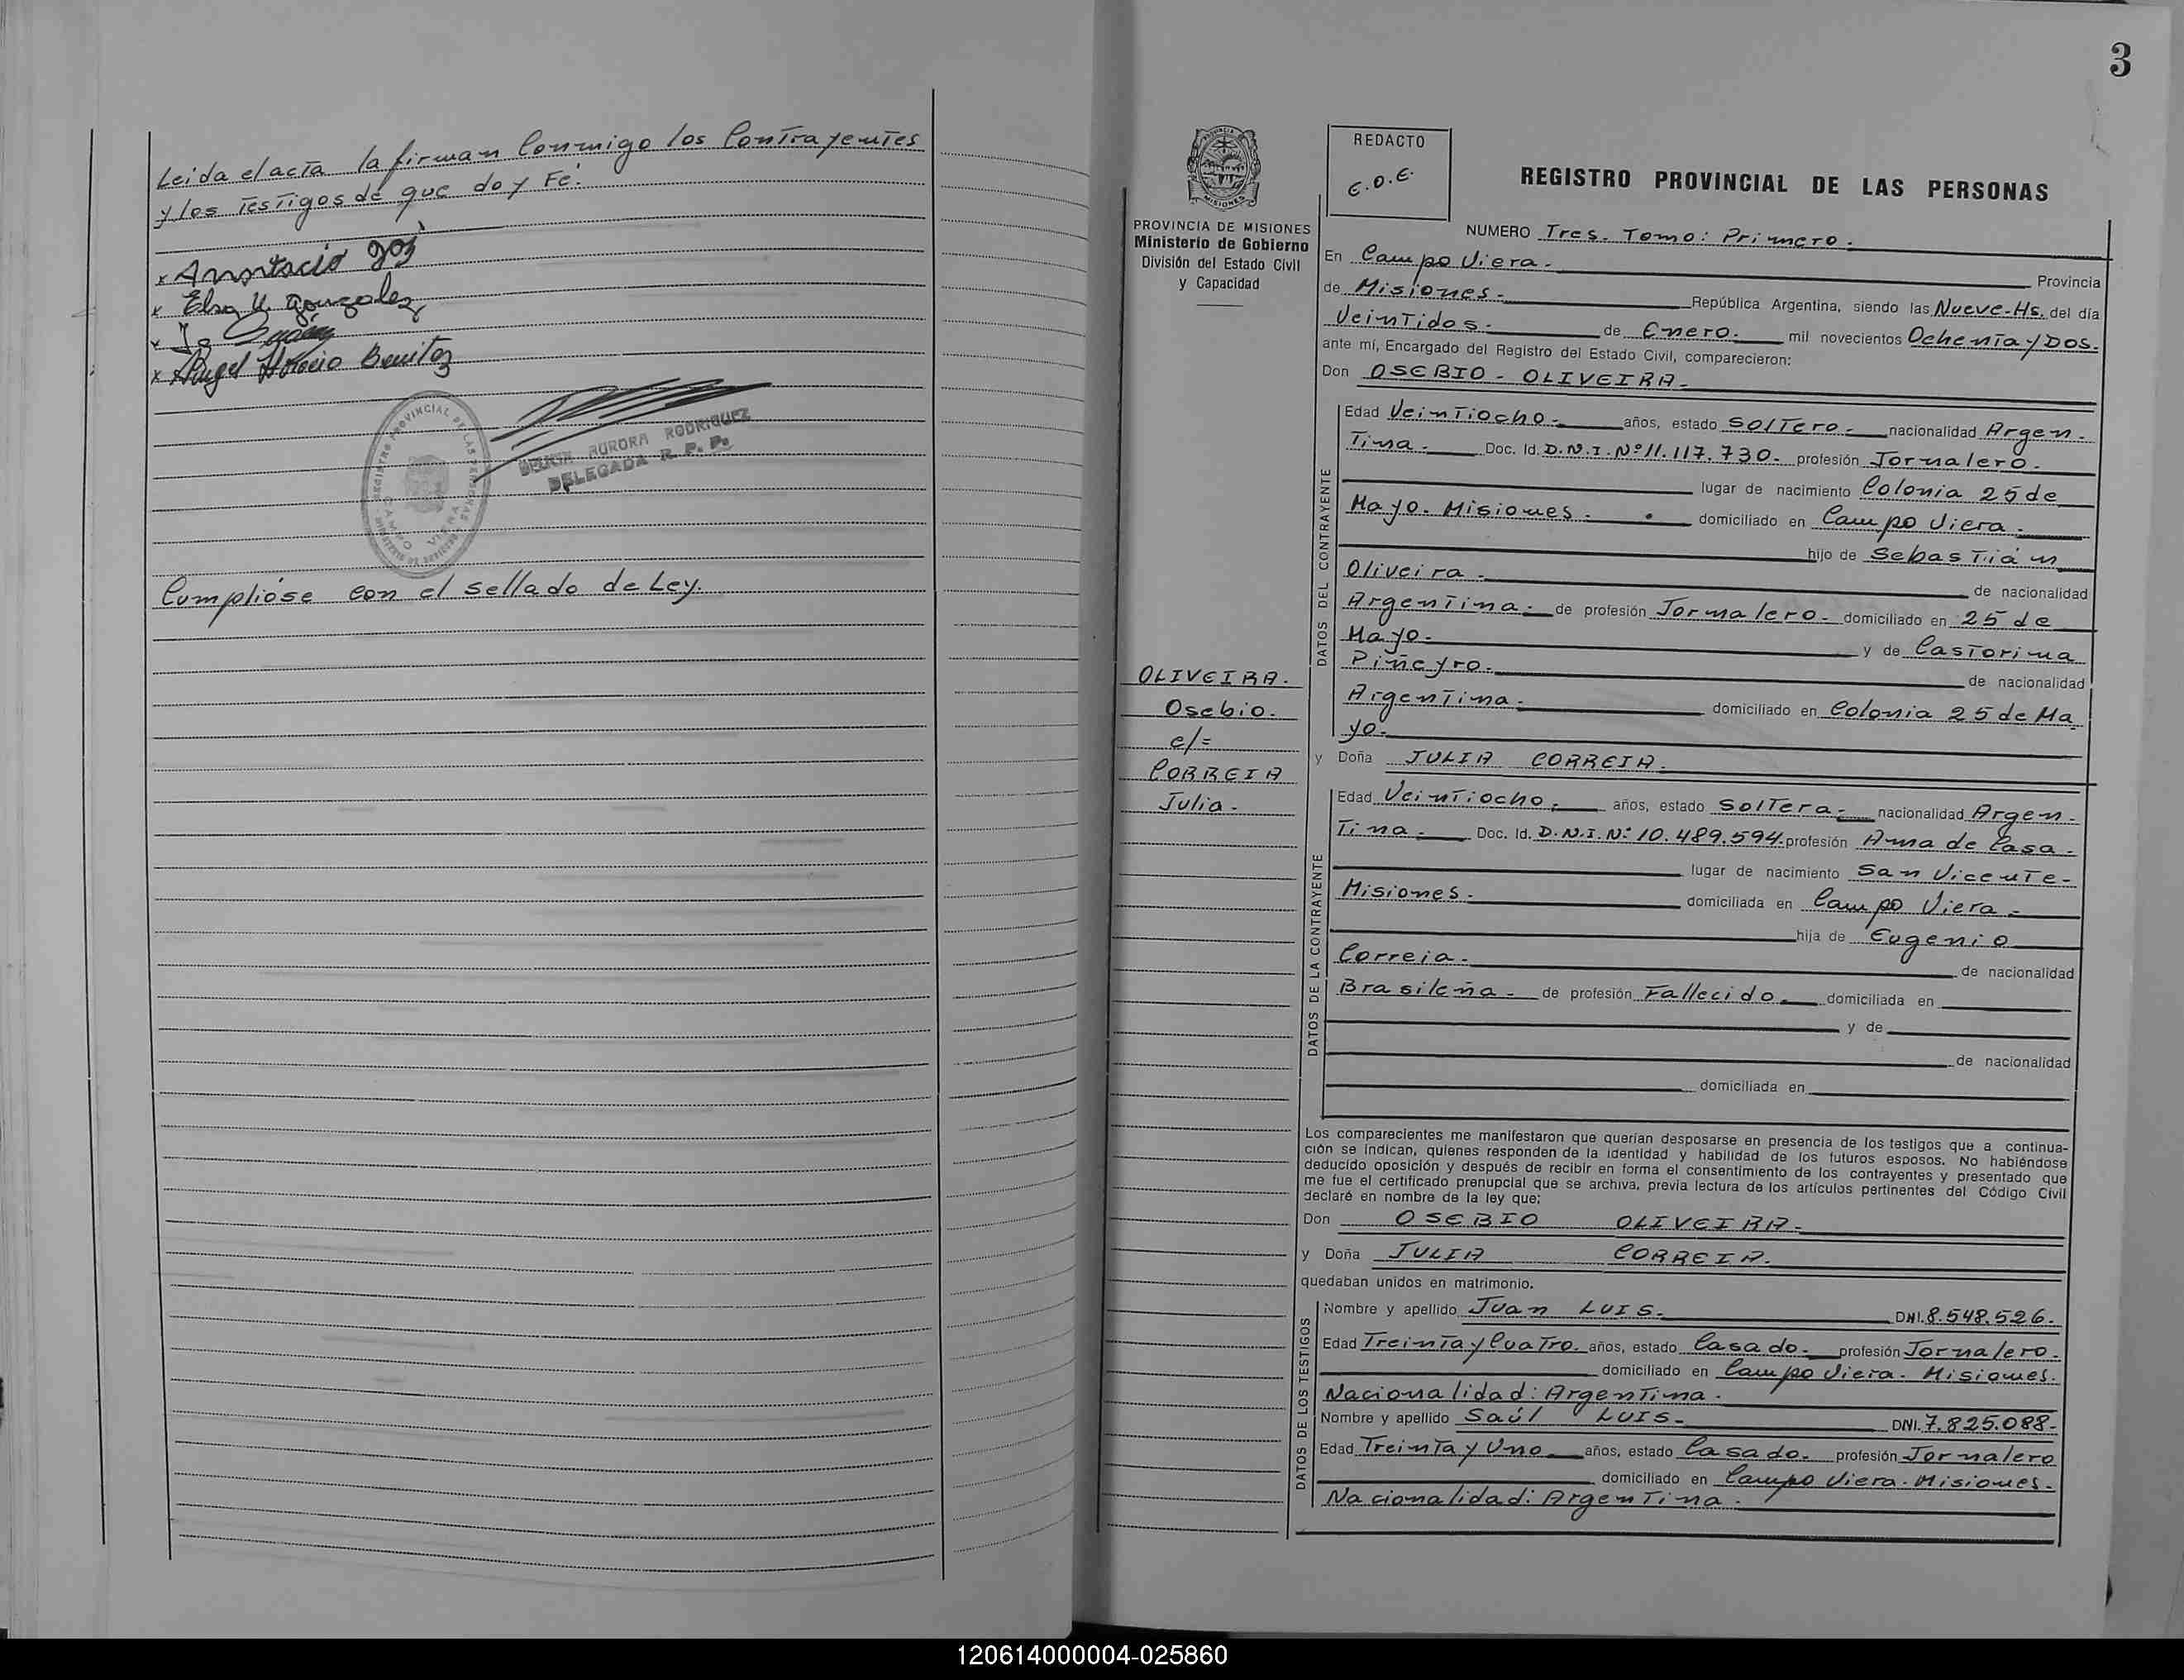 Leida el acta la firman Conmigo los Contrayentes
y los Testigos de que doy Fé.
x
x Elsa
x
x Angel Horacio Benitez
AURORA RODRIGUEZ
DELEGADA R. P. P.
REGISTRO PROVINCIAL DE LAS PERSONAS
CAMPO VIERA
Cumplióse con el sellado de Ley.
3
PROVINCIA DE MISIONES
Ministerio de Gobierno
División del Estado Civil
y Capacidad
REDACTO
E.O.E.
REGISTRO PROVINCIAL DE LAS PERSONAS
NUMERO Tres. Tomo: Primero.
En Campo Viera. Provincia
de Misiones. República Argentina, siendo las Nueve-Hs. del día
Veintidos. de Enero. mil novecientos Ochenta y Dos.
ante mí, Encargado del Registro del Estado Civil, comparecieron:
Don OSEBIO - OLIVEIRA.
DATOS DEL CONTRAYENTE
Edad Veintiocho. años, estado Soltero. nacionalidad Argen-
tina. Doc. Id. D.N.I. Nº 11.117.730. profesión Jornalero.
lugar de nacimiento Colonia 25 de
Mayo. Misiones. domiciliado en Campo Viera.
hijo de Sebastián
Oliveira. de nacionalidad
Argentina. de profesión Jornalero. domiciliado en 25 de
Mayo. y de Castorina
Piñeyro. de nacionalidad
Argentina. domiciliado en Colonia 25 de Ma
yo.
OLIVEIRA.
Osebio.
c/=
CORREIA
Julia.
y Doña JULIA CORREIA.
DATOS DE LA CONTRAYENTE
Edad Veintiocho. años, estado Soltera. nacionalidad Argen-
tina. Doc. Id. D.N.I. Nº 10.489.594. profesión Ama de Casa.
lugar de nacimiento San Vicente-
Misiones. domiciliada en Campo Viera.
hija de Eugenio
Correia. de nacionalidad
Brasileña. de profesión Fallecido. domiciliada en
y de
de nacionalidad
domiciliada en
Los comparecientes me manifestaron que querían desposarse en presencia de los testigos que a continua-
ción se indican, quienes responden de la identidad y habilidad de los futuros esposos. No habiéndose
deducido oposición y después de recibir en forma el consentimiento de los contrayentes y presentado que
me fue el certificado prenupcial que se archiva, previa lectura de los artículos pertinentes del Código Civil
declaré en nombre de la ley que:
Don OSEBIO OLIVEIRA.
y Doña JULIA CORREIA.
quedaban unidos en matrimonio.
DATOS DE LOS TESTIGOS
Nombre y apellido Juan LUIS. DNI. 8.548.526.
Edad Treinta y Cuatro. años, estado Casado. profesión Jornalero.
domiciliado en Campo Viera. Misiones.
Nacionalidad: Argentina.
Nombre y apellido Saúl LUIS. DNI. 7.825.088.
Edad Treinta y Uno años, estado Casado. profesión Jornalero
domiciliado en Campo Viera. Misiones.
Nacionalidad: Argentina.
120614000004-025860